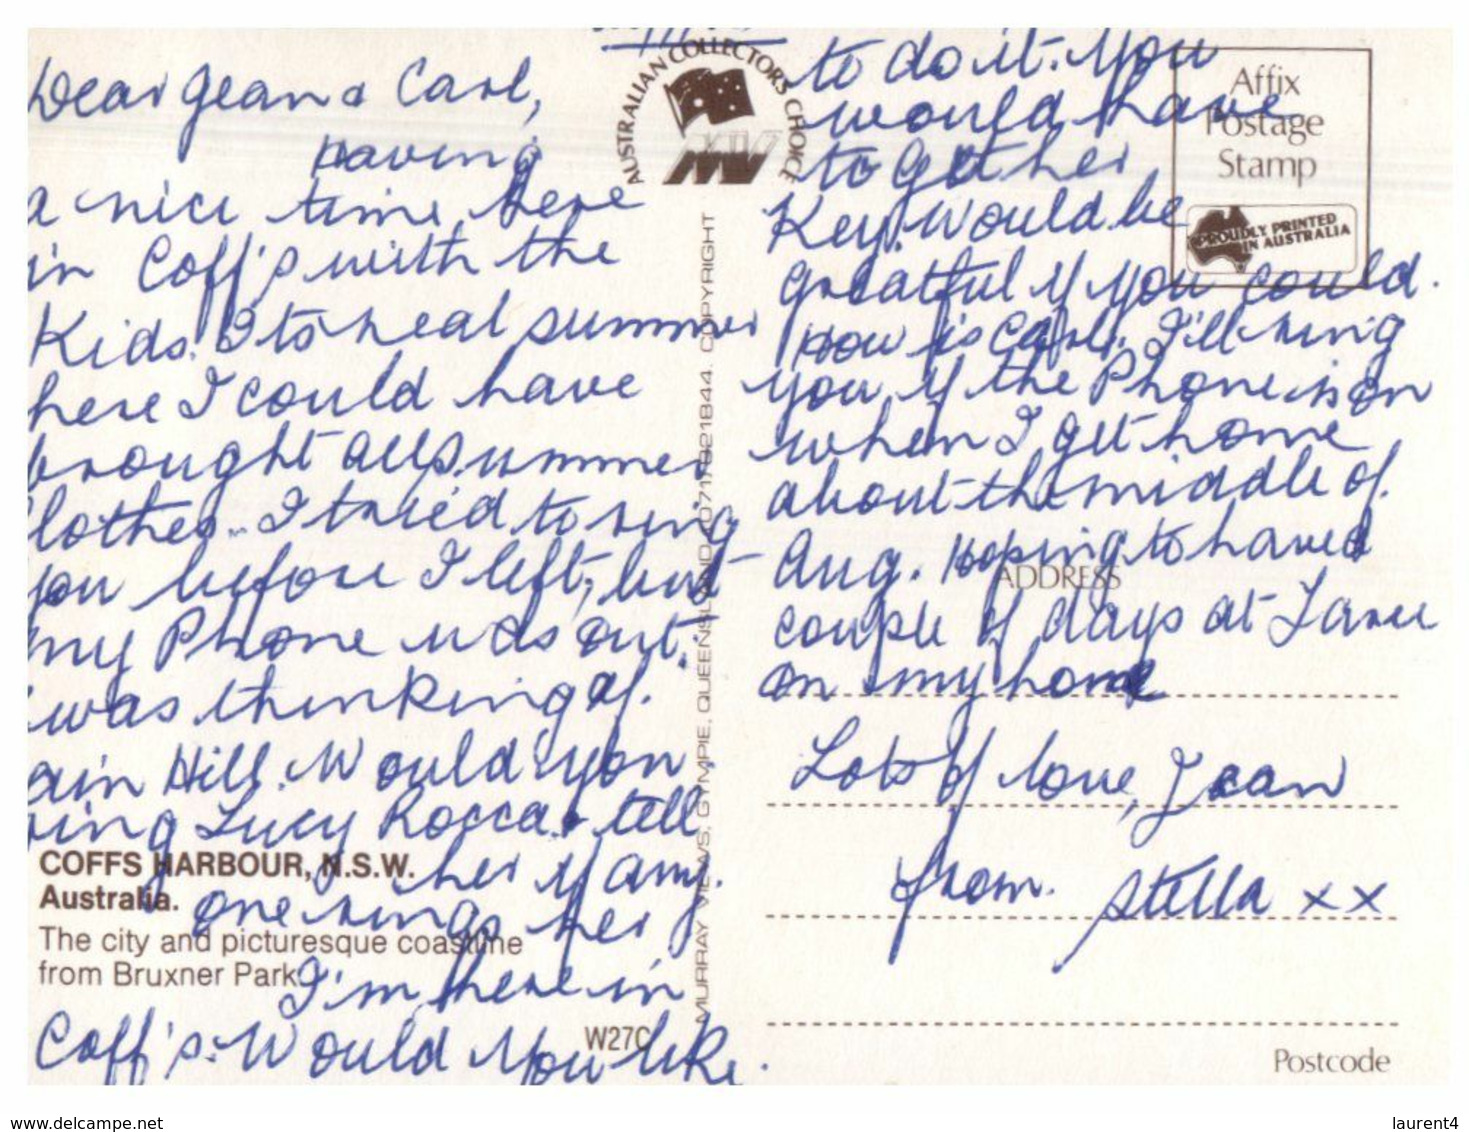 Dear Jean & Carl,
Having
a nice time here
in Coff's with the
Kids. Its real summer
here I could have
brought all summer
clothes. I tried to ring
you before I left, but
my Phone was out.
I was thinking of
Hill. Would you
ring Lucy Rocca & tell
her if any
one rings her
I'm here in
Coff's. Would you like
to do it. You
would have
to get her
Key. Would be
greatful if you could.
How is Carl. I'll ring
you if the Phone is on
when I get home
about the middle of
Aug. Hoping to have a
couple of days at Taree
on my home
Lots of love, Jean
from Stella xx
COFFS HARBOUR, N.S.W.
Australia.
The city and picturesque coastline
from Bruxner Park.
W27C
AUSTRALIAN COLLECTORS CHOICE
MV
MURRAY VIEWS, GYMPIE, QUEENSLAND. (071) 821844. COPYRIGHT
Affix
Postage
Stamp
PROUDLY PRINTED
IN AUSTRALIA
ADDRESS
Postcode
www.delcampe.net
laurent4